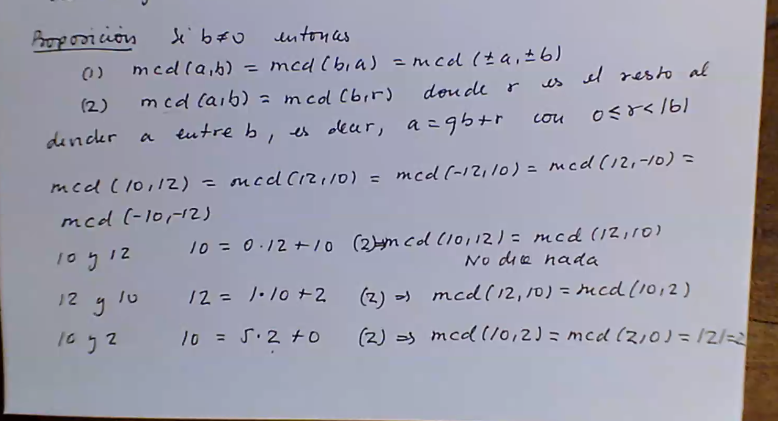 Proposición Si b≠0 entonces
(1) mcd(a,b) = mcd(b,a) = mcd(±a,±b)
(2) mcd(a,b) = mcd(b,r) donde r es el resto al
dividir a entre b, es decir, a = qb+r con 0≤r<|b|
mcd(10,12) = mcd(12,10) = mcd(-12,10) = mcd(12,-10) =
mcd(-10,-12)
10 y 12 10 = 0·12+10 (2)⇒mcd(10,12) = mcd(12,10)
No dice nada
12 y 10 12 = 1·10+2 (2)⇒ mcd(12,10) = mcd(10,2)
10 y 2 10 = 5·2+0 (2)⇒ mcd(10,2) = mcd(2,0) = |2|=2